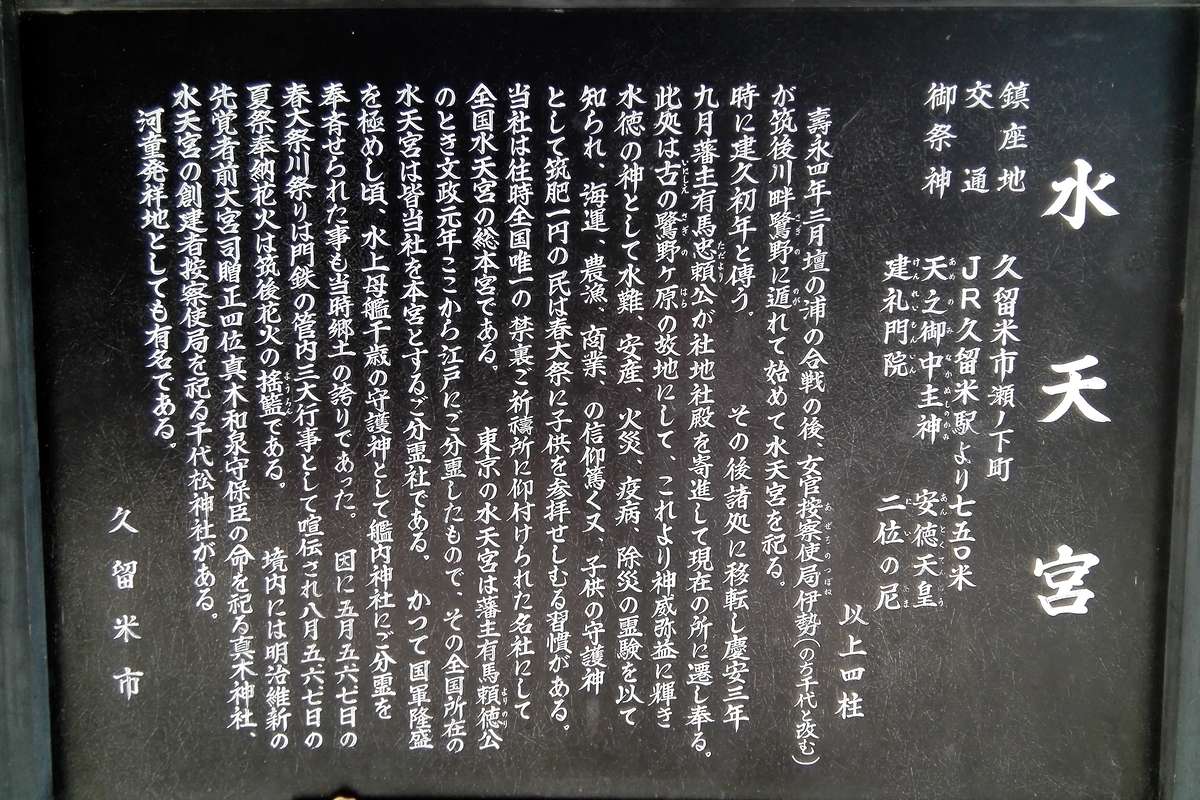 水天宮
鎮座地　久留米市瀬ノ下町
交通　JR久留米駅より七五〇米
御祭神　天之御中主神　安徳天皇
建礼門院　二位の尼
以上四柱
壽永四年三月壇の浦の合戦の後、女官按察使局伊勢(のち千代と改む)
が筑後川畔鷺野に遁れて始めて水天宮を祀る。
時に建久初年と傳う。　その後諸処に移転し慶安三年
九月藩主有馬忠頼公が社地社殿を寄進して現在の所に遷し奉る。
此処は古の鷺野ヶ原の故地にして、これより神威弥益に輝き
水徳の神として水難、安産、火災、疫病、除災の霊験を以て
知られ、海運、農漁、商業、の信仰篤く又、子供の守護神
として筑肥一円の民は春大祭に子供を参拝せしむる習慣がある。
当社は往時全国唯一の禁裏ご祈禱所に仰付けられた名社にして
全国水天宮の総本宮である。　東京の水天宮は藩主有馬頼徳公
のとき文政元年ここから江戸にご分霊したもので、その全国所在の
水天宮は皆当社を本宮とするご分霊社である。　かつて国軍隆盛
を極めし頃、水上母艦千歳の守護神として艦内神社にご分霊を
奉斉せられた事も当時郷土の誇りであった。　因に五月五六七日の
春大祭川祭りは門鉄の管内三大行事として喧伝され八月五六七日の
夏祭奉納花火は筑後花火の揺籃である。　境内には明治維新の
先覚者前大宮司贈正四位真木和泉守保臣の命を祀る真木神社、
水天宮の創建者按察使局を祀る千代松神社がある。
河童発祥地としても有名である。
久留米市